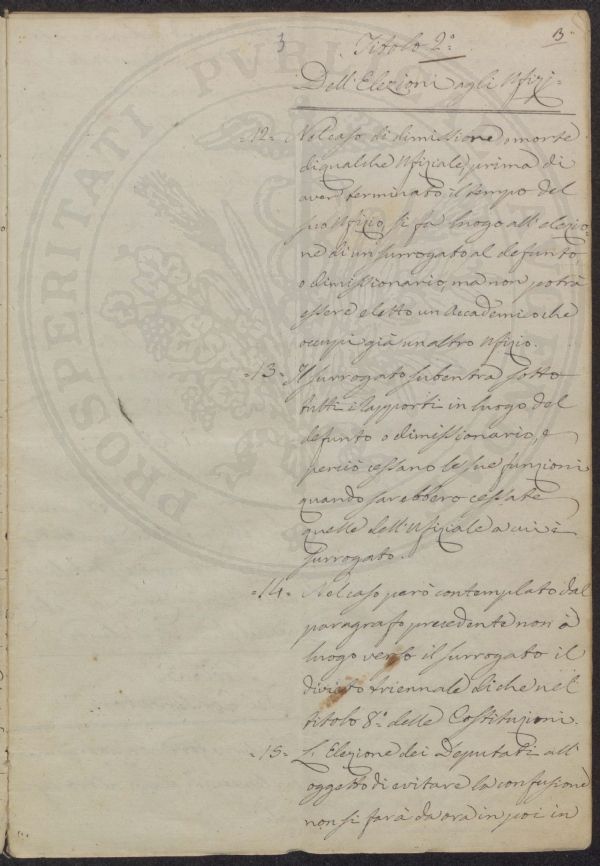 3
13
Titolo 2.°
Dell'Elezioni agli Ufizi
=12= Nel caso di dimissione, o morte
di qualche Ufiziale, prima di
aver terminato il tempo del
suo Ufizio si fa luogo all'elezio=
ne di un surrogato al defunto,
o dimissionario, ma non potrà
essere eletto un Accademico che
occupi già un altro Ufizio.
=13= Il surrogato subentra sotto
tutti i rapporti in luogo del
defunto o dimissionario, e
perciò cessano le sue funzioni
quando sarebbero cessate
quelle dell'Ufiziale a cui è
surrogato.
=14= Nel caso però contemplato dal
paragrafo precedente non à
luogo verso il surrogato il
divieto triennale di che nel
titolo 8.° delle Costituzioni.
=15= L'Elezione dei Deputati all'
oggetto di evitare la confusione
non si farà da ora in poi in
PROSPERITATI PVBLICAE